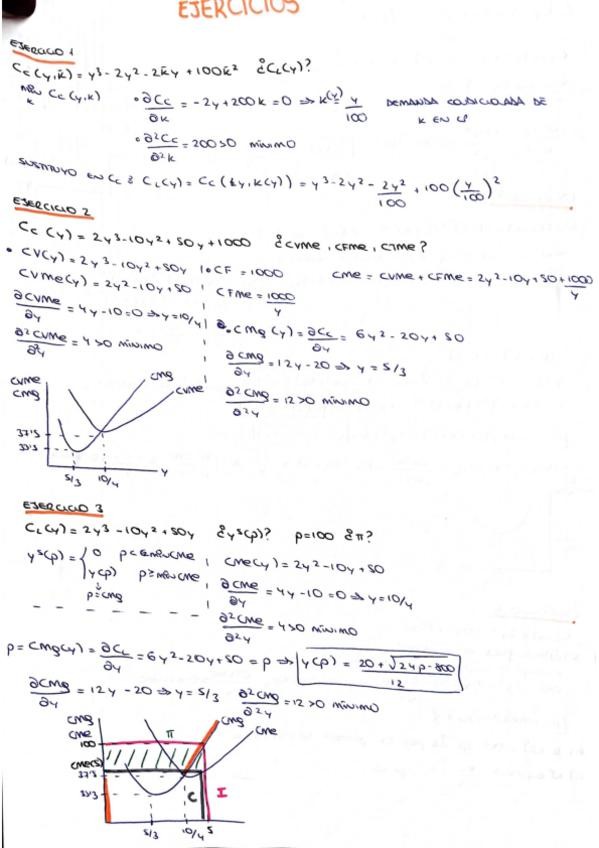 EJERCICIOS
EJERCICIO 1
Cc(y,k̄) = y³ - 2y² - 2k̄y + 100k̄² ¿CL(y)?
mín Cc(y,k) • ∂Cc/∂k = -2y + 200k = 0 ⇒ k(y) = y/100 DEMANDA CONDICIONADA DE
k K EN LP
• ∂²Cc/∂²k = 200 > 0 MÍNIMO
SUSTITUYO EN Cc: CL(y) = Cc(y,k(y)) = y³ - 2y² - 2y²/100 + 100(y/100)²
EJERCICIO 2
Cc(y) = 2y³ - 10y² + 50y + 1000 ¿CVMe, CFMe, CTMe?
• CV(y) = 2y³ - 10y² + 50y • CF = 1000 CMe = CVMe + CFMe = 2y² - 10y + 50 + 1000/y
CVMe(y) = 2y² - 10y + 50 CFMe = 1000/y
∂CVMe/∂y = 4y - 10 = 0 ⇒ y = 10/4 • CMg(y) = ∂Cc/∂y = 6y² - 20y + 50
∂²CVMe/∂²y = 4 > 0 MÍNIMO ∂CMg/∂y = 12y - 20 ⇒ y = 5/3
∂²CMg/∂²y = 12 > 0 MÍNIMO
CVMe
CMg
CMg
CVMe
37'5
33'3
5/3 10/4 y
EJERCICIO 3
CL(y) = 2y³ - 10y² + 50y ¿yˢ(p)? p = 100 ¿π?
yˢ(p) = { 0 p < mín CMe CMe(y) = 2y² - 10y + 50
y(p) p ≥ mín CMe ∂CMe/∂y = 4y - 10 = 0 ⇒ y = 10/4
↓
p = CMg
∂²CMe/∂²y = 4 > 0 MÍNIMO
p = CMg(y) = ∂CL/∂y = 6y² - 20y + 50 = p ⇒ y(p) = 20 + √24p - 800/12
∂CMg/∂y = 12y - 20 ⇒ y = 5/3 ∂²CMg/∂²y = 12 > 0 MÍNIMO
CMg
CMe
π CMg
CMe
100
CMe(5)
37'5
33'3
C I
5/3 10/4 5